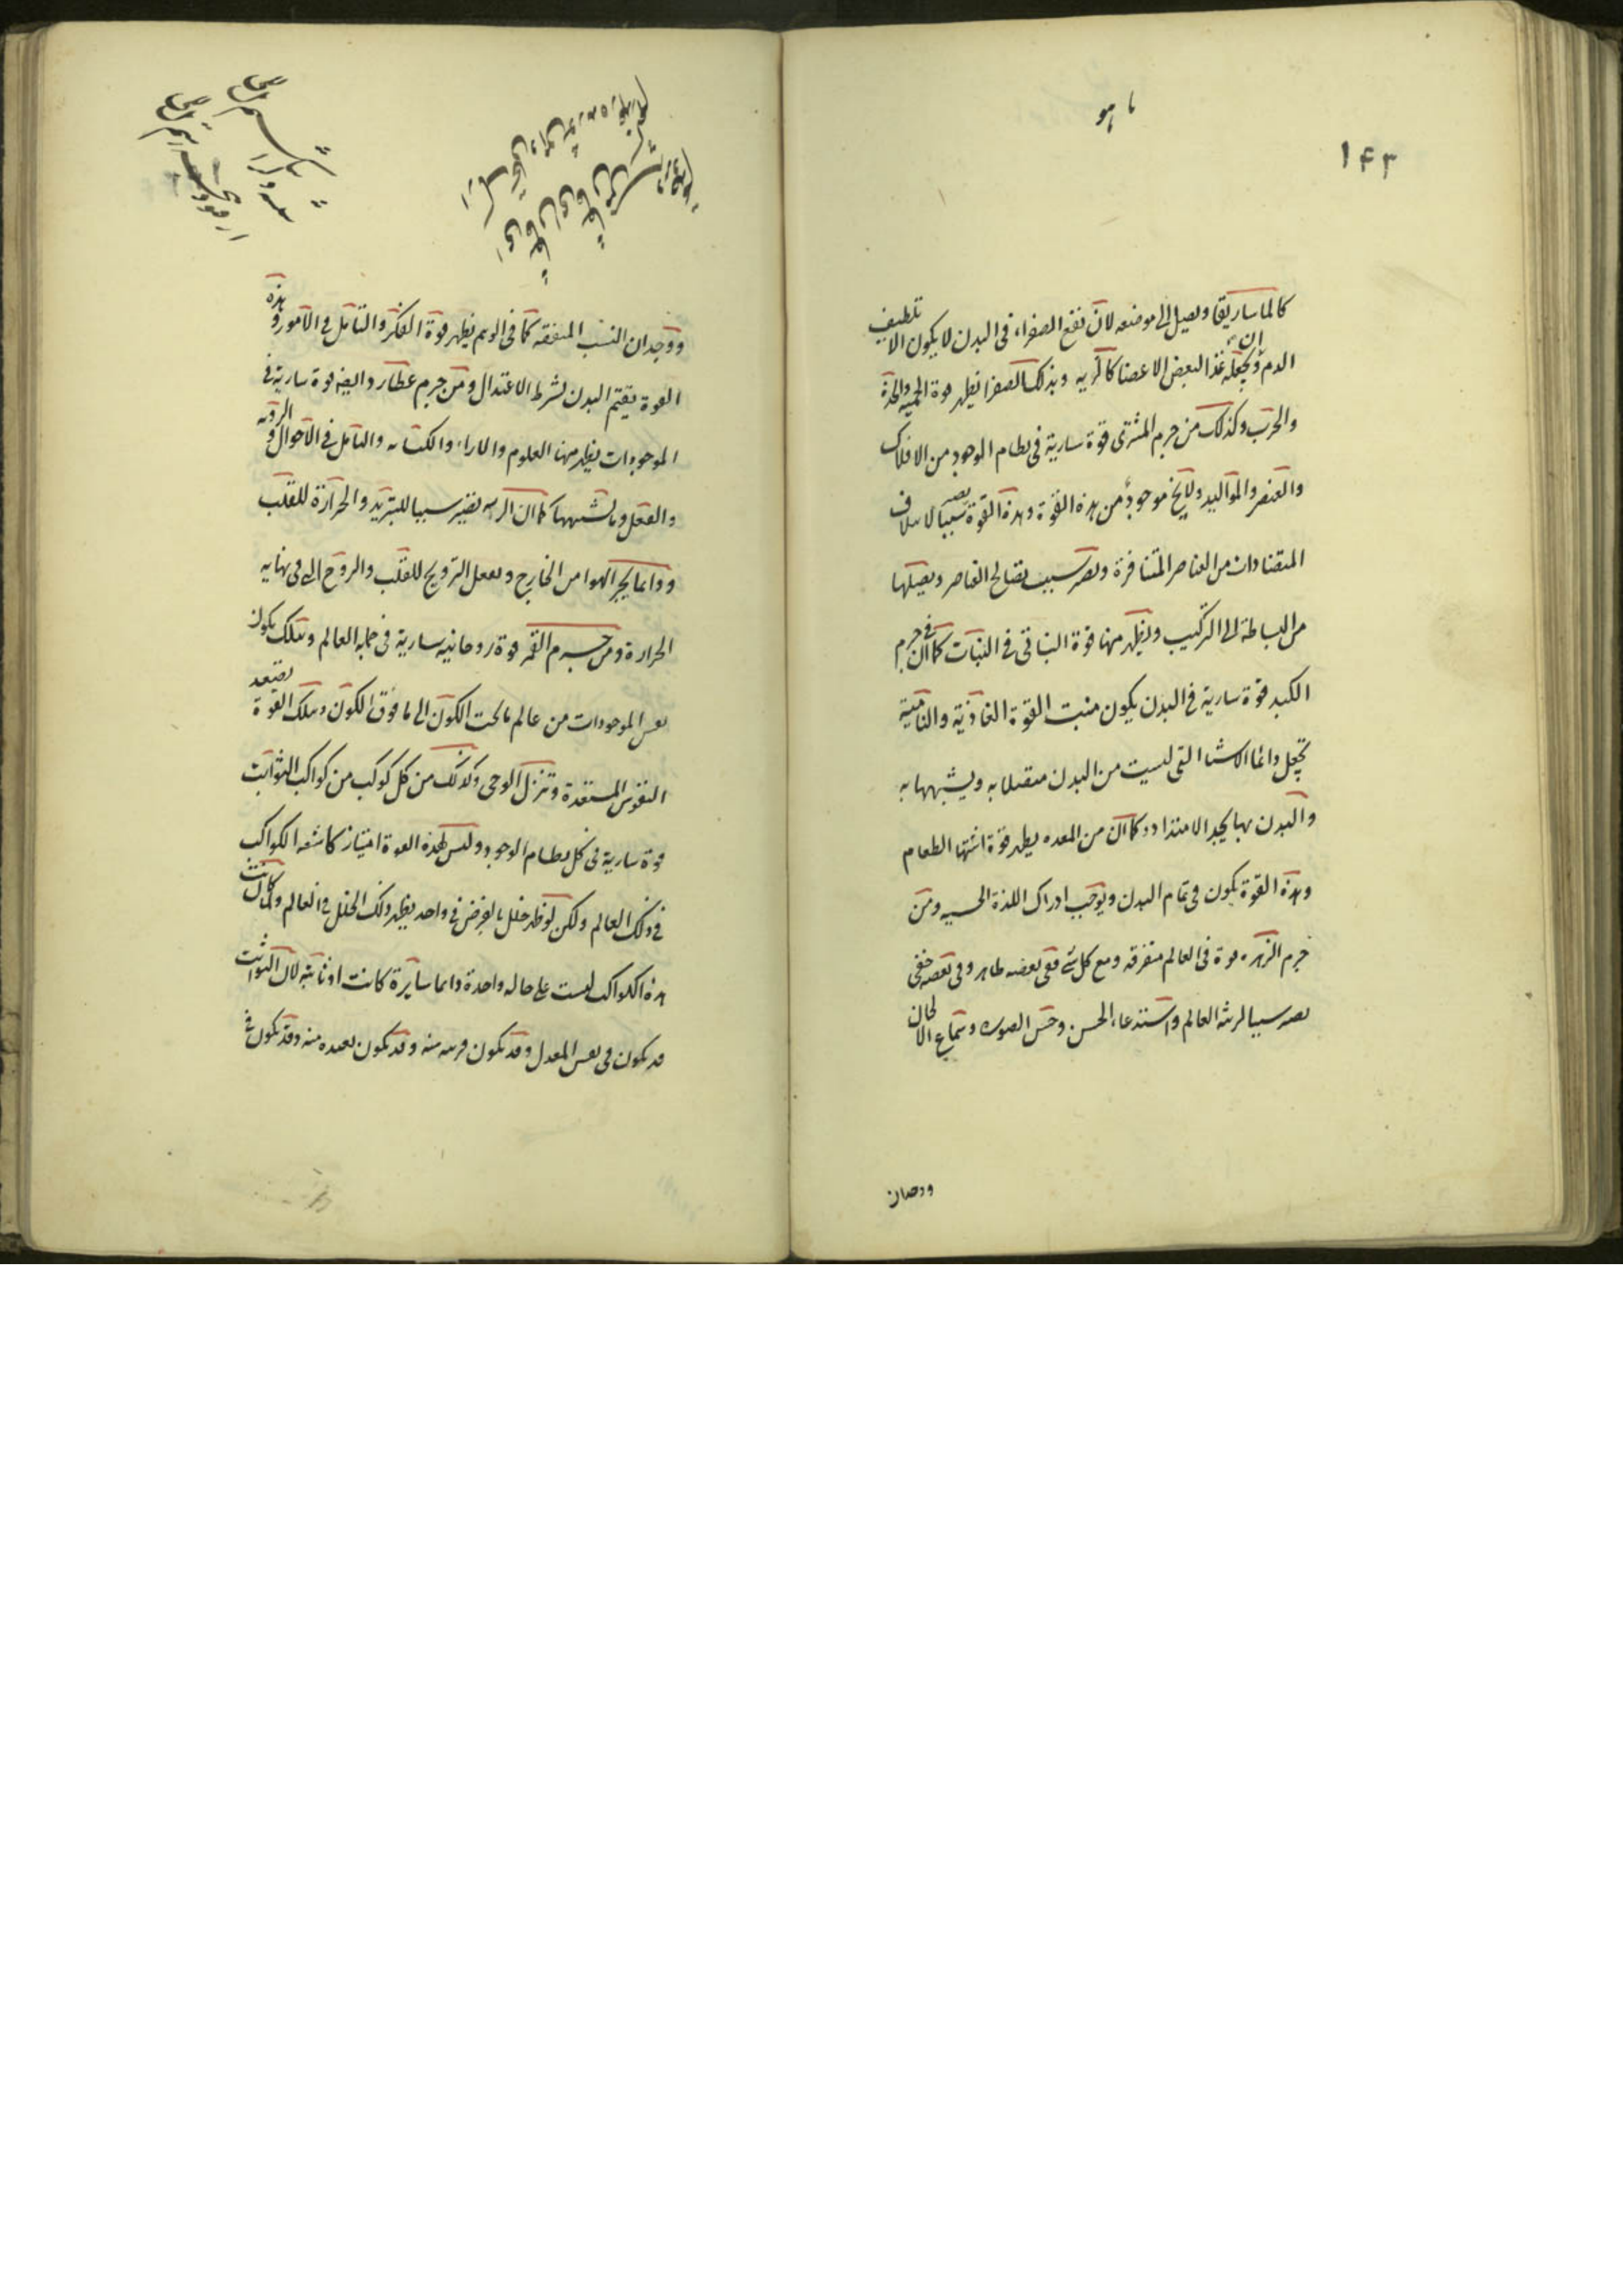 يا هو
۱۴۳
كالماساريقا ويصل الى موضعه لان نفع الصفراء في البدن لا يكون الا تلطيف
الدم او ان يجعله غذا لبعض الاعضا كالريه وبذلك الصفرا يظهر قوة الحميه والحدة
والحرب وكذلك من جرم المشترى قوة سارية في نظام الوجود من الافلاك
والعنصر والمواليد ولا يخ موجود من هذه القوة وهذه القوة يصير سببا لايتلاف
المتضادات من العناصر المتنافرة ويصير سبب تصالح العناصر ويصلها
من البساطة الى التركيب ويظهر منها قوة النباتى في النبات كما ان في جرم
الكبد قوة سارية في البدن يكون منبت القوة الغاذية والنامية
تجعل دائما الاشيا التي ليست من البدن متصلا به ويشبهها به
والبدن بها يجد الامتداد وكما ان من المعده يظهر قوة اشتها الطعام
وهذه القوة يكون في تمام البدن ويوجب ادراك اللذة الحسيه ومن
جرم الزهره قوة في العالم متفرقه ومع كل شئ ففى بعضه ظاهر وفي بعضه خفى
يصير سببا لزينة العالم واستدعاء الحسن وحسن الصوره وسماع الالحان
ووجدان
ووجدان النسب المتفقه كما في الوهم يظهر قوة الفكر والتامل في الامور وهذه
القوة يقيم البدن بشرط الاعتدال ومن جرم عطارد ايضه قوة سارية في
الموجودات يظهر منها العلوم والاراء والكتابه والتامل في الاحوال والرويه
والعقل وما يشبهها كما ان الريه يصير سببا للتبريد والحرارة للقلب
ودائما يجر الهوا من الخارج ويفعل الترويح للقلب والروح الى في نهايه
الحرارة ومن جرم القمر قوة روحانيه سارية في جمله العالم وبتلك يكون
نفس الموجودات من عالم ما تحت الكون الى ما فوق الكون وبتلك القوة تصعد
النفوس المستعدة وتنزل الوحى وكذلك من كل كوكب من كواكب الثوابت
قوة سارية في كل نظام الوجود وليس لهذه القوة امتياز كاشعه الكواكب
في ذلك العالم ولكن لو ظهر خلل بالعرض في واحد يظهر ذلك الخلل في العالم ولما كانت
هذه الكواكب ليست على حاله واحدة دايما سايرة كانت او ثابته لان الثوابت
قد يكون في نفس المعدل وقد يكون قريبه منه وقد يكون بعيده منه وقد يكون في